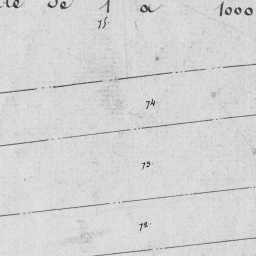 de 1 à 1000
75.
74
73.
72.